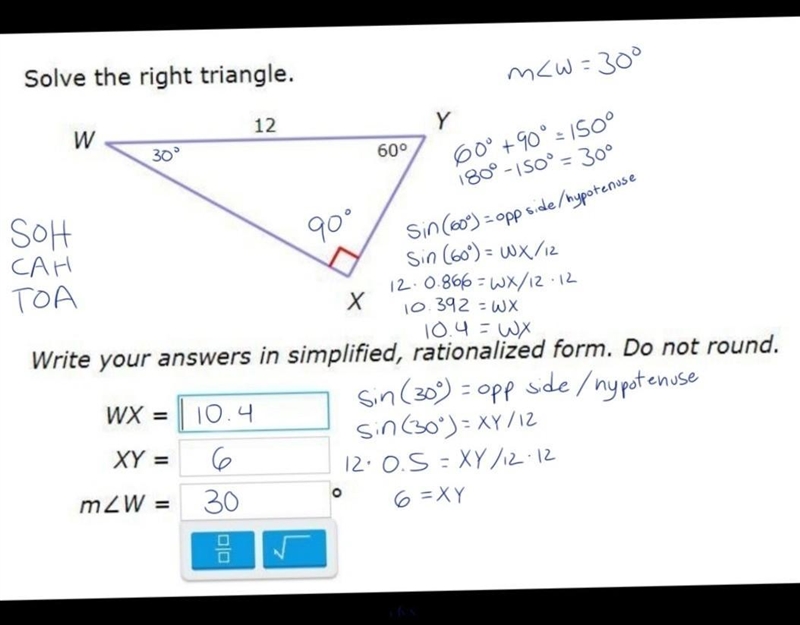 Solve the right triangle.
m∠W = 30°
W
12
Y
30°
60°
60° + 90° = 150°
180° - 150° = 30°
90°
X
SOH
CAH
TOA
sin(60°) = opp side/hypotenuse
sin(60°) = WX/12
12 · 0.866 = WX/12 · 12
10.392 = WX
10.4 = WX
Write your answers in simplified, rationalized form. Do not round.
WX = 10.4
XY = 6
m∠W = 30 °
sin(30°) = opp side/hypotenuse
sin(30°) = XY/12
12 · 0.5 = XY/12 · 12
6 = XY